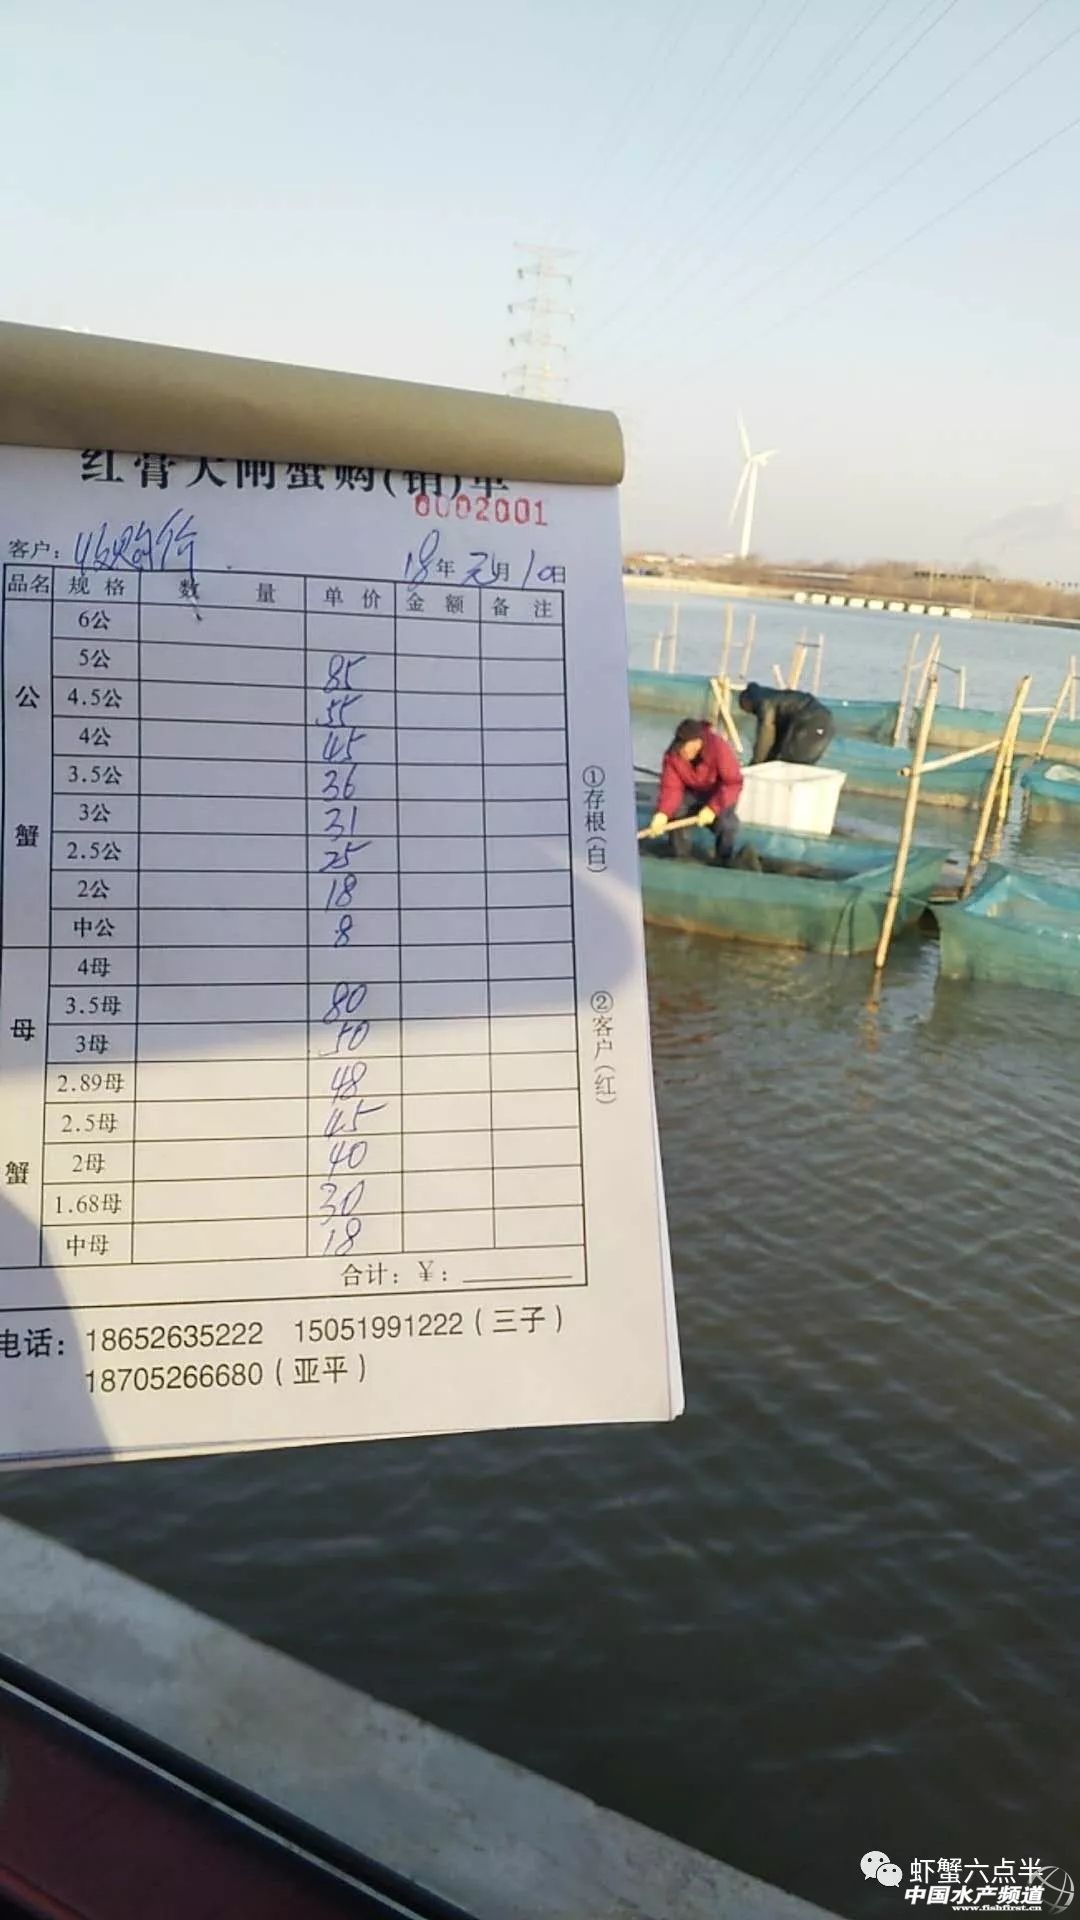 红膏大闸蟹购(销)单
0002001
客户: 收购价 18年元月10日
品名 规格 数量 单价 金额 备注
公蟹
6公
5公 85
4.5公 55
4公 45
3.5公 36
3公 31
2.5公 25
2公 18
中公 8
母蟹
4母
3.5母 80
3母 50
2.89母 48
2.5母 45
2母 40
1.68母 30
中母 18
合计: ¥:
①存根(白)
②客户(红)
电话: 18652635222 15051991222(三子)
18705266680(亚平)
虾蟹六点半
中国水产频道
www.fishfirst.cn